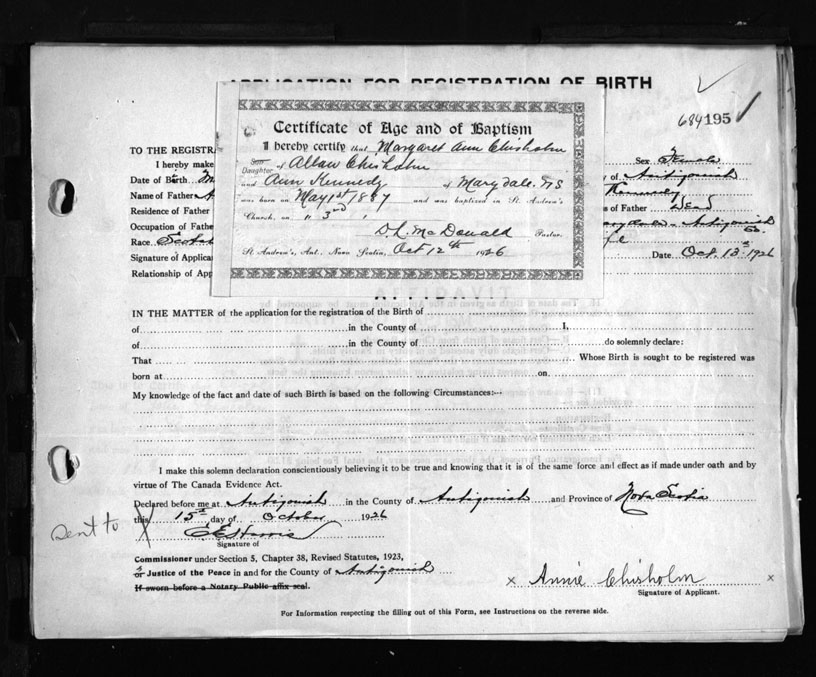 APPLICATION FOR REGISTRATION OF BIRTH
684195
Certificate of Age and of Baptism
I hereby certify that Margaret Ann Chisholm
Son
Daughter of Allan Chisholm
and Ann Kennedy of Marydale. NS
was born on May 1st 1887 and was baptized in St. Andrew's
Church, on " 3rd "
D. L. McDonald Pastor.
St. Andrew's, Ant., Nova Scotia, Oct 12th 1926
TO THE REGISTRA
I hereby make
Sex Female
Date of Birth
of Antigonish
Name of Father
Kennedy
Residence of Father
s of Father Dead
Occupation of Father
Antigonish Co.
Race
Signature of Applica
Date Oct. 13th 1926
Relationship of App
AFFIDAVIT
IN THE MATTER of the application for the registration of the Birth of
of in the County of I,
of in the County of do solemnly declare:
That Whose Birth is sought to be registered was
born at on
My knowledge of the fact and date of such Birth is based on the following Circumstances:--
I make this solemn declaration conscientiously believing it to be true and knowing that it is of the same force and effect as if made under oath and by
virtue of The Canada Evidence Act.
Declared before me at Antigonish in the County of Antigonish and Province of Nova Scotia
this 15th day of October 1926
sent to X
Signature of
Commissioner under Section 5, Chapter 38, Revised Statutes, 1923,
or Justice of the Peace in and for the County of Antigonish
If sworn before a Notary Public affix seal.
x Annie Chisholm x
Signature of Applicant.
For Information respecting the filling out of this Form, see Instructions on the reverse side.